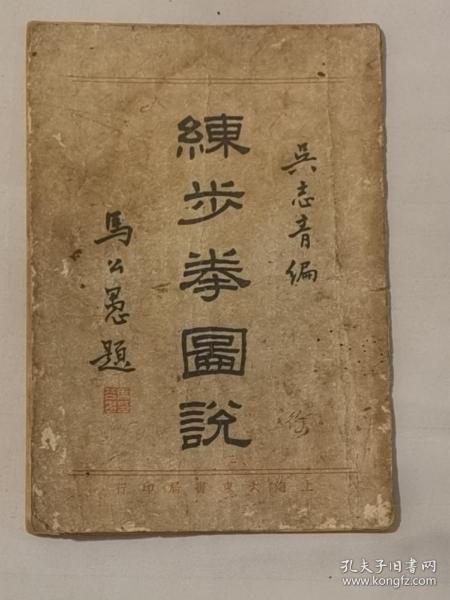 吳志青編
練步拳圖說
馬公愚題
上海大東書局印行
孔夫子旧书网
www.kongfz.com